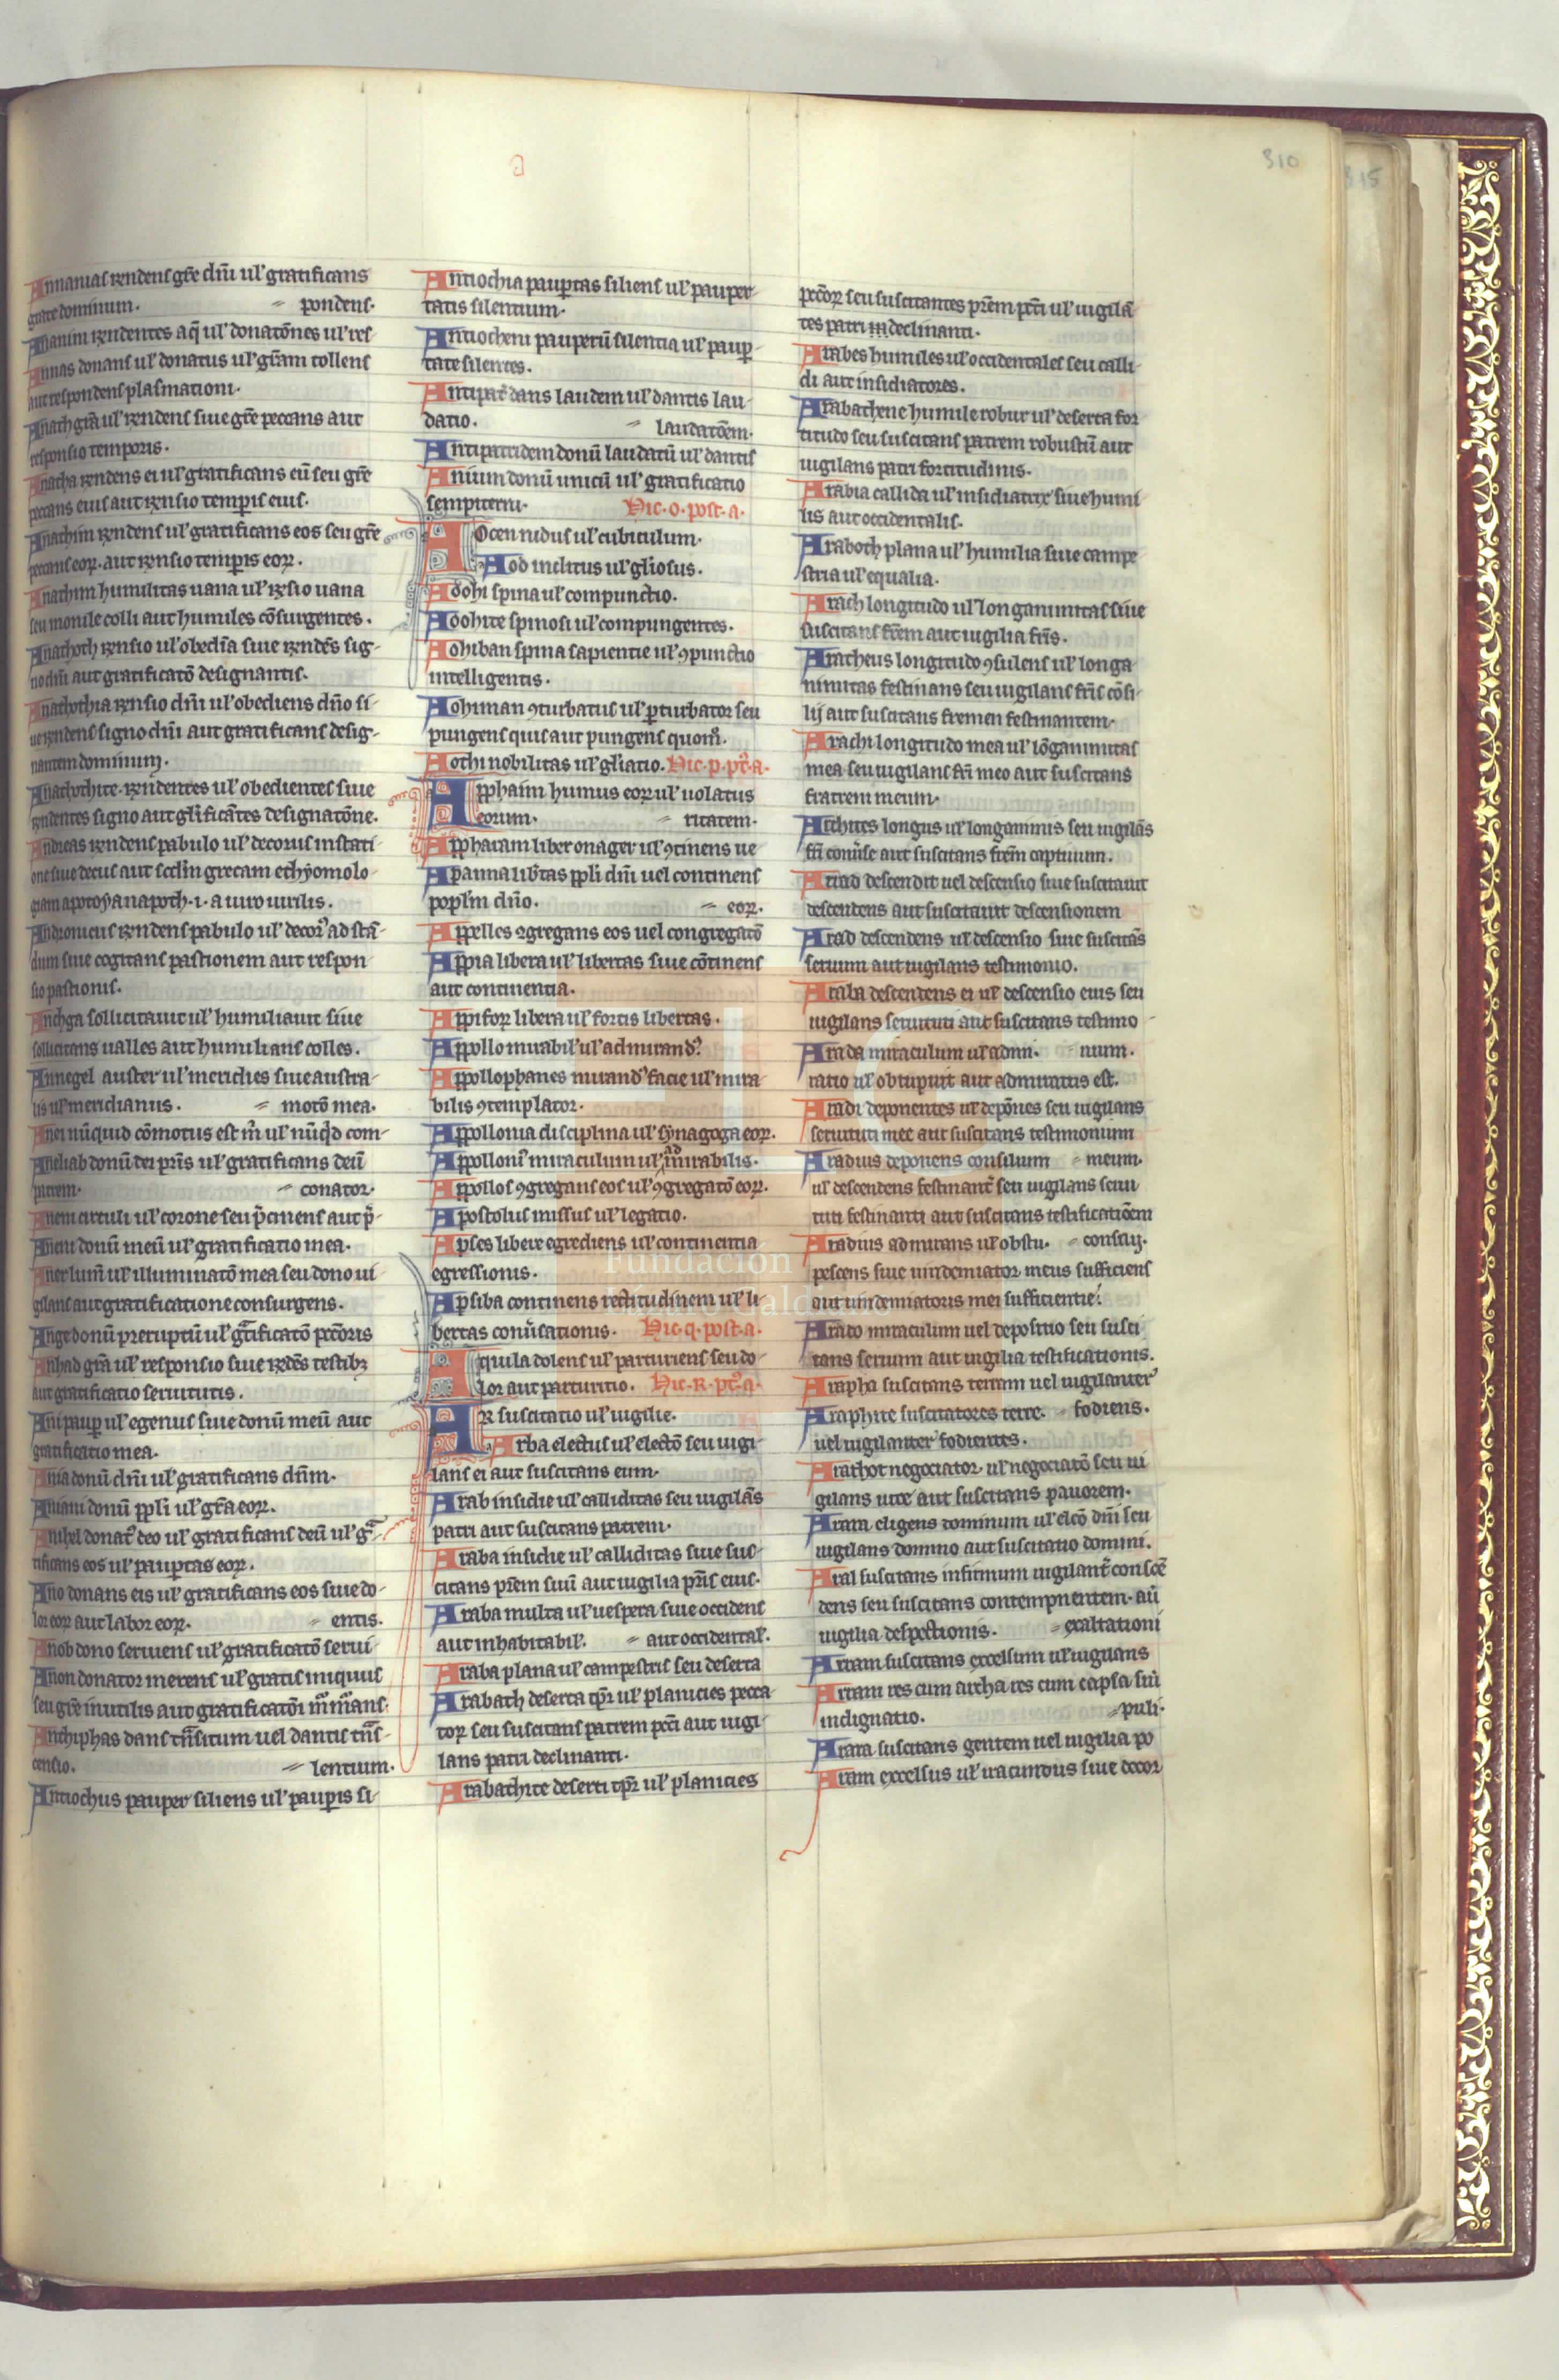 a
310
315
Annanias rñdens gr̃e dñi ul' gratificans
grate dominum. pondens.
Ananim rñdentes aq̃ ul' donatōnes ul' res
Annas donans ul' donatus ul' gr̃am tollens
aut respondens plasmationi.
Anath gr̃a ul' rñdens siue gr̃e peccans aut
responsio temporis.
Anatha rñdens ei ul' gratificans eū seu gr̃e
peccans eius aut rñsio temp̄is eius.
Anathim rñdens ul' gratificans eos seu gr̃e
peccans eoꝝ. aut rñsio temp̄is eoꝝ.
Anathim humilitas uana ul' rñsio uana
seu monile colli aut humiles cōsurgentes.
Anathoth rñsio ul' obediīa siue rñdēs sig-
no dñi aut gratificatō designantis.
Anathothia rñsio dñi ul' obediens dño si-
ue rñdens signo dñi aut gratificans desig-
nantem dominum.
Anathothite. rñdentes ul' obedientes siue
rñdentes signo aut gl̃ificātes designatōne.
Andreas rñdens pabulo ul' decorus in stati
one siue decus aut scd̃m grecam ethyomolo
giam apotoy anapoth. i. a uiro uirilis.
Andronicus rñdens pabulo ul' decor' ad stā-
dum siue cogitans pastionem aut respon
sio pastionis.
Anchga sollicitauit ul' humiliauit siue
sollicitans ualles aut humilians colles.
Annegel auster ul' meridies siue austra-
lis ul' meridianus. motō mea.
Anei nūquid cōmotus est m̄ ul' nūq̇d com-
Aneliab donū dei p̄ris ul' gratificans deū
patrem. conator.
Anem circuli ul' corone seu p̃cinens aut p̃-
Anem donū meū ul' gratificatio mea.
Aner lum̄ ul' illuminatō mea seu dono ui
gilans aut gratificatione consurgens.
Ange donū preruptū ul' gr̃tificatō pectoris
Anihad gr̃a ul' responsio siue rñdēs testibꝫ
aut gratificatio seruitutis.
Ani paup ul' egenus siue donū meū aut
gratificatio mea.
Ania donū dñi ul' gratificans dñm.
Aniam donū ppl̃i ul' gr̃a eoꝝ.
Anihel donat' deo ul' gratificans deū ul' gr̃
tificans eos ul' pauptas eoꝝ.
Ano donans eis ul' gratificans eos siue do-
lor eoꝝ aut labor eoꝝ. entis.
Anob dono seruiens ul' gratificatō serui-
Anon donator merens ul' gratis iniquus
seu gr̃e inutilis aut gratificatōi
Anchiphas dans trñsitum uel dantis trñs-
censio. lentium.
Antiochus pauper siliens ul' paup̄is si-
Antiochia pauptas siliens ul' pauper-
tatis silentium.
Antiocheni pauperū silentia ul' paup-
tate silentes.
Antipat' dans laudem ul' dantis lau
datio. laudatōem.
Antipatridem donū laudatū ul' dantis
Anium donū unicū ul' gratificatio
sempiterni. Hic. o. post. a.
Aocen nidus ul' cubiculum.
Aod inclitus ul' gl̃iosus.
Aohi spina ul' compunctio.
Aohite spinosi ul' compungentes.
Aohiban spina sapientie ul' ꝯpunctio
intelligentis.
Aohiman ꝯturbatus ul' p̱turbator seu
pungens quis aut pungens quom̄.
Aothi nobilitas ul' gl̃iatio. Hic. p. pt'. a.
Apphaim humus eoꝝ ul' uolatus
eorum. ritatem.
Appharam liber onager ul' ꝯtinens ue
Apanna lib̃tas ppl̃i dñi uel continens
popl̃m dño. eoꝝ.
Appelles ꝯgregans eos uel congregatō
Appia libera ul' libertas siue cōtinens
aut continentia.
Appifoꝝ libera ul' fortis libertas.
Appollo mirabil' ul' admirand'.
Appollophanes mirand' facie ul' mira
bilis ꝯtemplator.
Appollonia disciplina ul' synagoga eoꝝ.
Appolloni' miraculum ul' admirabilis.
Appollos ꝯgregans eos ul' ꝯgregatō eoꝝ.
Apostolus missus ul' legatio.
Apses libere egrediens ul' continentia
egressionis.
Apsiba continens rectitudinem ul' li-
bertas conũsationis. Hic. q. post. a.
Aquila dolens ul' parturiens seu do-
lor aut parturitio. Hic. R. pt'. a.
AR suscitatio ul' uigilie.
Arba electus ul' electō seu uigi-
lans ei aut suscitans eum.
Arab insidie ul' calliditas seu uigilās
patri aut suscitans patrem.
Araba insidie ul' calliditas siue sus-
citans p̄rem suū aut uigilia p̄ris eius.
Araba multa ul' uespera siue occidens
aut inhabitabil'. aut occidental'.
Araba plana ul' campestris seu deserta
Arabath deserta ul' planicies pecca-
toꝝ seu suscitans patrem pcc̄i aut uigi-
lans patri declinanti.
Arabathite deserti ul' planicies
pcc̄oꝝ seu suscitantes p̄rem pcc̄i ul' uigilā
tes patri declinanti.
Arabes humiles ul' occidentales seu calli-
di aut insidiatores.
Arabathene humile robur ul' deserta for
titudo seu suscitans patrem robustū aut
uigilans patri fortitudinis.
Arabia callida ul' insidiatrix siue humi
lis aut occidentalis.
Araboth plana ul' humilia siue campe
stria ul' equalia.
Arach longitudo ul' longanimitas siue
suscitans fr̄em aut uigilia fr̄is.
Aracheus longitudo ꝯsulens ul' longa
nimitas festinans seu uigilans fr̄is cōsi-
lij aut suscitans fr̄emen festinantem.
Arachi longitudo mea ul' lōganimitas
mea seu uigilans fr̄i meo aut suscitans
fratrem meum.
Arthites longus ul' longanimis seu uigilās
fr̄i conũse aut suscitans fr̄em captiuum.
Arad descendit uel descensio siue suscitauit
descendens aut suscitauit descensionem
Arad descendens ul' descensio siue suscitās
seruum aut uigilans testimonio.
Arada descendens ei ul' descensio eius seu
uigilans seruituti aut suscitans testimo-
Arada miraculum ul' admi. nium.
ratio ul' obtupuit aut admiratus est.
Aradi deponentes ul' depōnes seu uigilans
seruituti mee aut suscitans testimonium
Aradius deponens consilium meum.
ul' descendens festinant' seu uigilans serui
tuti festinanti aut suscitans testificatiōem
Aradius admirans ul' obstu. consilij.
pescens siue uindemiator meus sufficiens
aut uindemiatoris mei sufficientie.
Arado miraculum uel depositio seu susci
tans seruum aut uigilia testificationis.
Arapha suscitans terram uel uigilanter
Araphite suscitatores terre. fodiens.
uel uigilanter fodientes.
Arathot negociator ul' negociatō seu ui
gilans aut suscitans pauorem.
Araia eligens dominum ul' elcō dñi seu
uigilans domino aut suscitatio domini.
Aral suscitans infimum uigilant' conscē
dens seu suscitans contempnentem. aū
uigilia despectionis. exaltationi
Aram suscitans excelsum ul' uigilans
Aram res cum archa res cum capsa siū
indignatio. puli.
Arara suscitans gentem uel uigilia po
Aram excelsus ul' iracundus siue decor
Fundación
Lázaro Galdiano